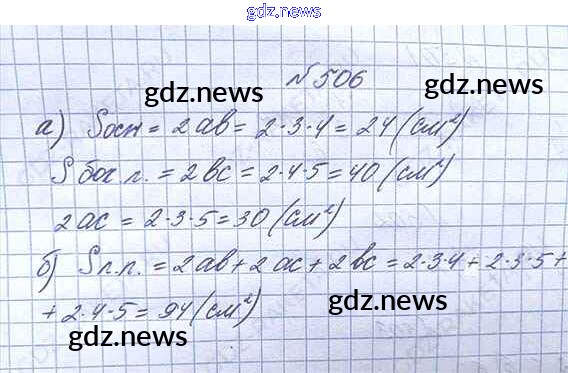 gdz.news
№506
gdz.news
gdz.news
а) Sосн = 2ab = 2·3·4 = 24 (см²)
S бок.п. = 2bc = 2·4·5 = 40 (см²)
2ac = 2·3·5 = 30 (см²)
б) Sп.п. = 2ab + 2ac + 2bc = 2·3·4 + 2·3·5 +
+ 2·4·5 = 94 (см²)
gdz.news
gdz.news